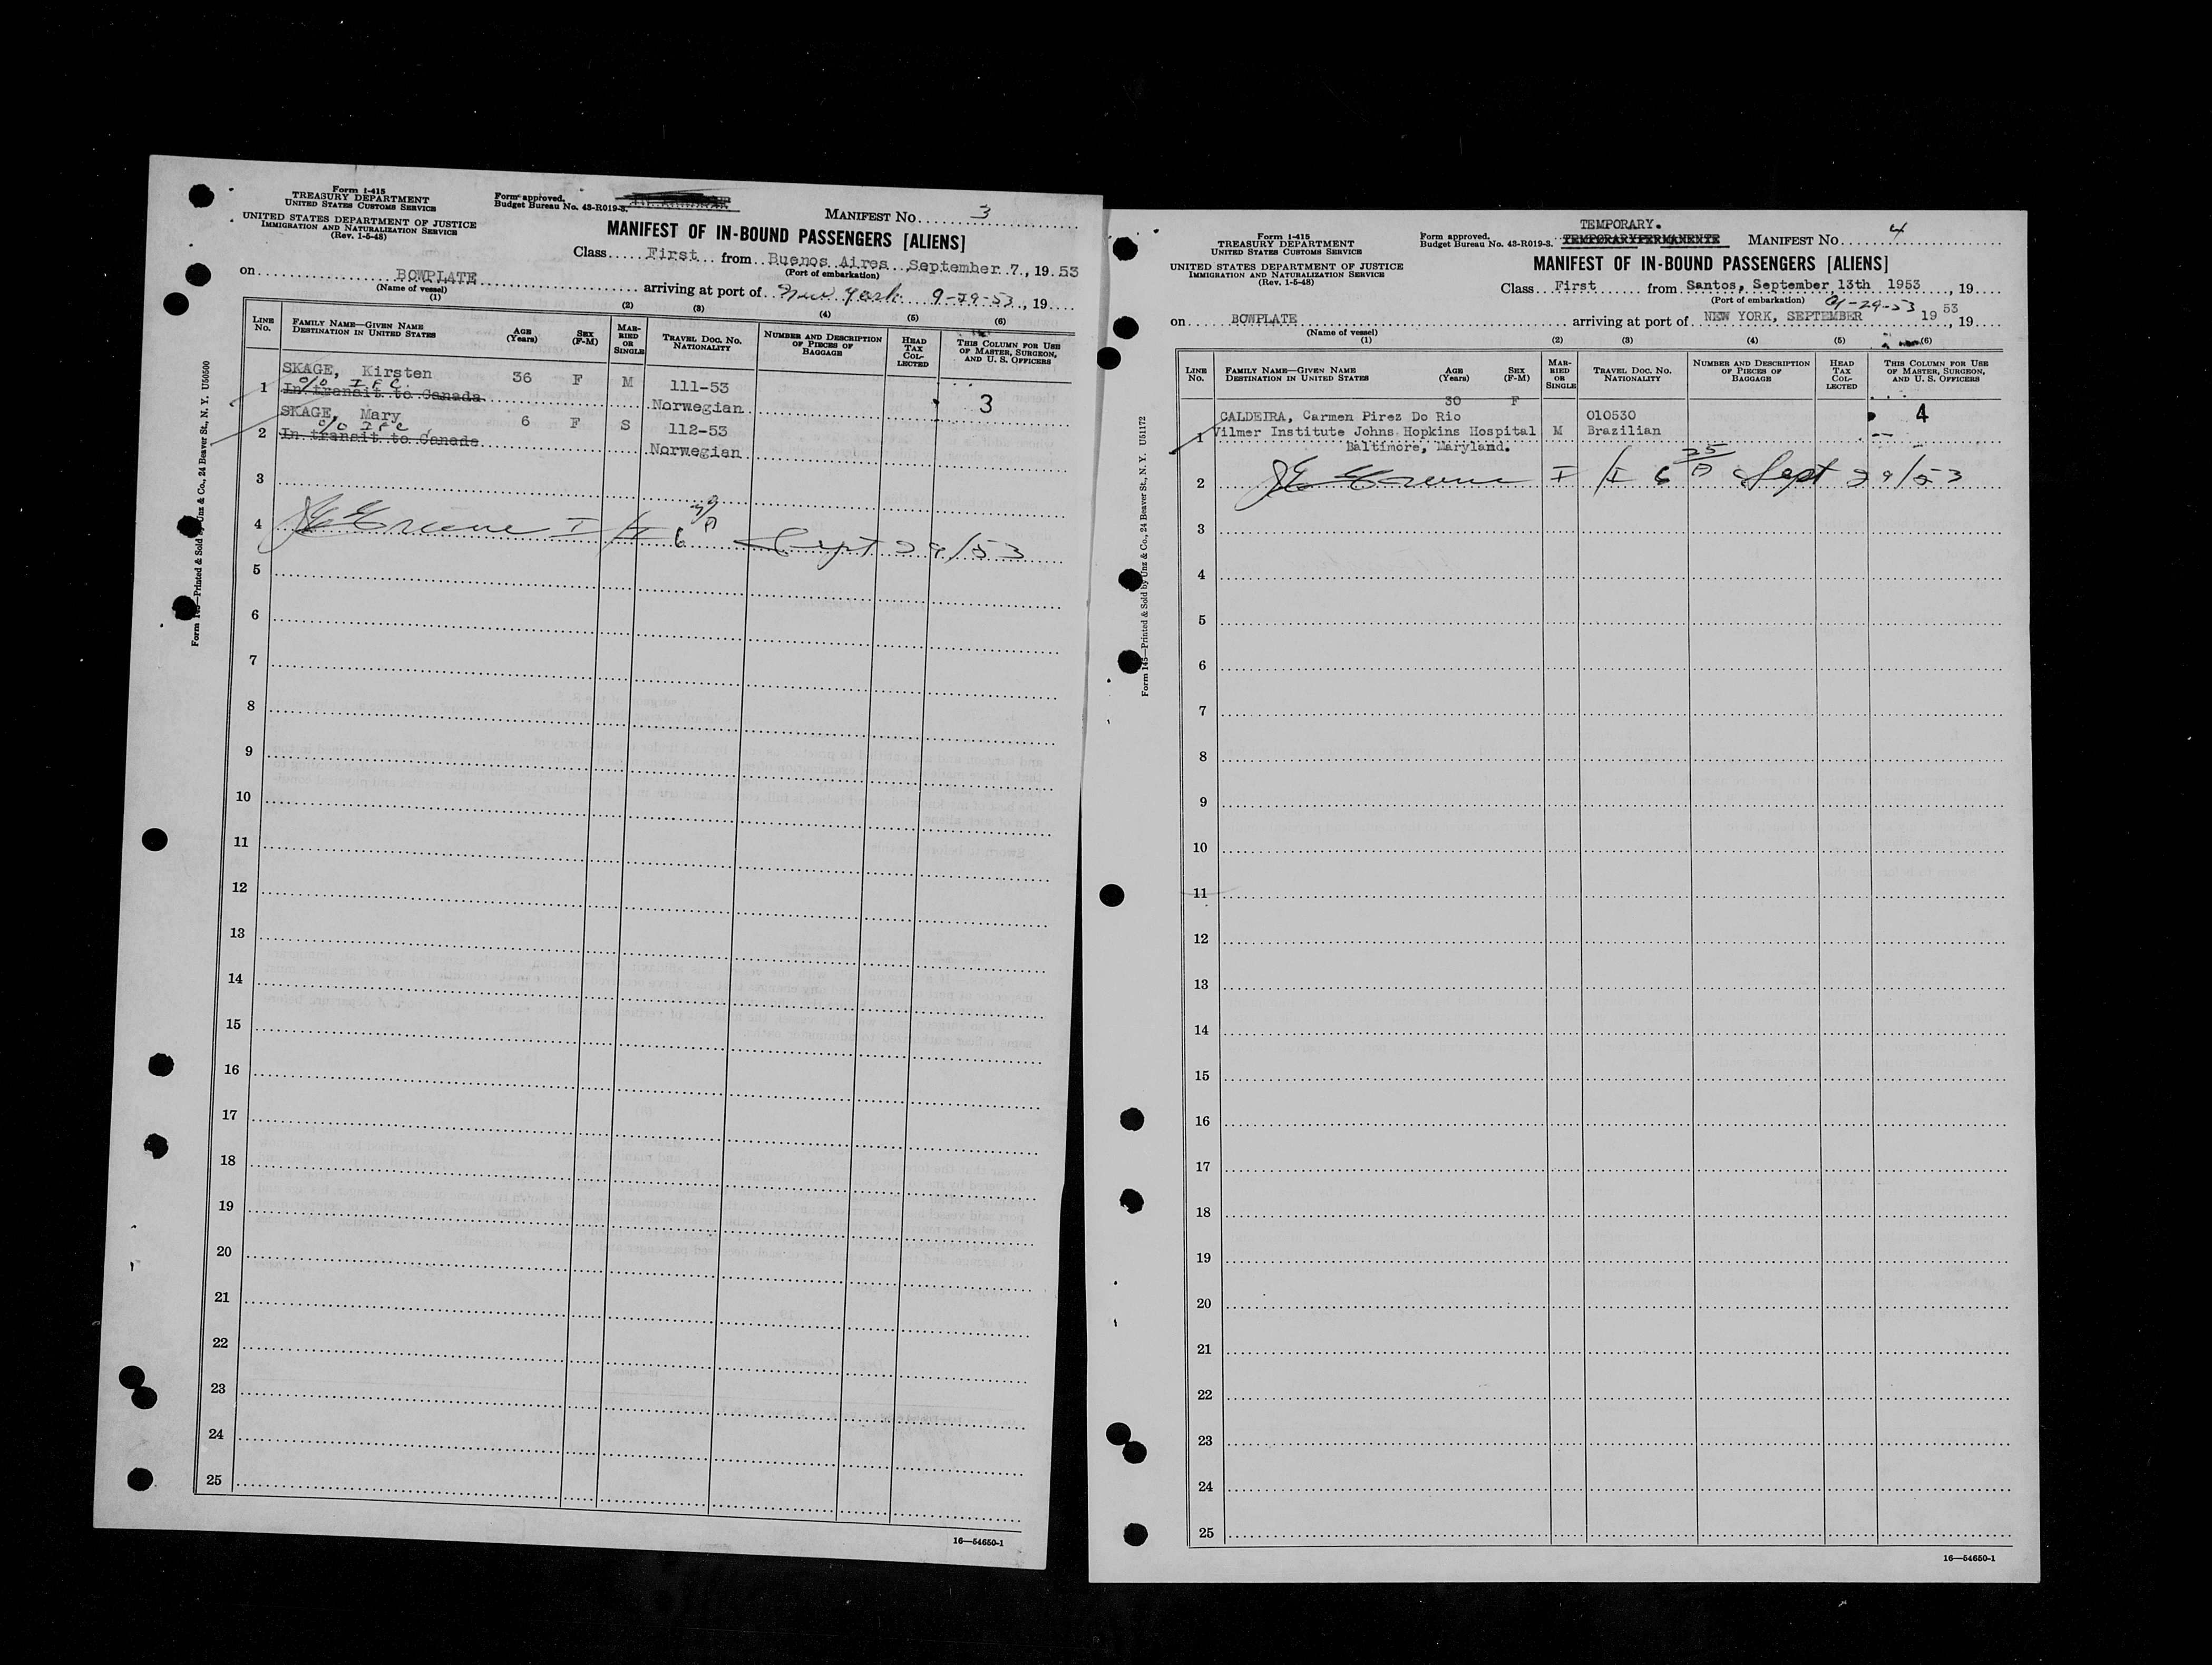 Form I-415
TREASURY DEPARTMENT
UNITED STATES CUSTOMS SERVICE
UNITED STATES DEPARTMENT OF JUSTICE
IMMIGRATION AND NATURALIZATION SERVICE
(Rev. 1-5-48)
Form approved.
Budget Bureau No. 43-R019-3.
MANIFEST No. 3
MANIFEST OF IN-BOUND PASSENGERS [ALIENS]
Class First from Buenos Aires September 7, 1953
(Port of embarkation)
on BOWPLATE arriving at port of New York 9-29-53, 19
(Name of vessel)
(1) (2) (3) (4) (5) (6)
LINE No. FAMILY NAME—GIVEN NAME DESTINATION IN UNITED STATES AGE (Years) SEX (F-M) MARRIED OR SINGLE TRAVEL DOC. No. NATIONALITY NUMBER AND DESCRIPTION OF PIECES OF BAGGAGE HEAD TAX COLLECTED THIS COLUMN FOR USE OF MASTER, SURGEON, AND U. S. OFFICERS
SKAGE, Kirsten 36 F M 111-53 3
1 c/o I F C.
In transit to Canada Norwegian
SKAGE, Mary 6 F S 112-53
2 c/o I F C
In transit to Canada Norwegian
3
4 Greene I / I 6 Sept 29/53
5
6
7
8
9
10
11
12
13
14
15
16
17
18
19
20
21
22
23
24
25
16—54650-1
Form 145—Printed & Sold by Unz & Co., 24 Beaver St., N. Y. U50500
Form I-415
TREASURY DEPARTMENT
UNITED STATES CUSTOMS SERVICE
UNITED STATES DEPARTMENT OF JUSTICE
IMMIGRATION AND NATURALIZATION SERVICE
(Rev. 1-5-48)
Form approved.
Budget Bureau No. 43-R019-3.
TEMPORARY.
MANIFEST No. 4
MANIFEST OF IN-BOUND PASSENGERS [ALIENS]
Class First from Santos, September 13th 1953, 19
(Port of embarkation)
on BOWPLATE arriving at port of NEW YORK, SEPTEMBER 9-29-53 1953, 19
(Name of vessel)
(1) (2) (3) (4) (5) (6)
LINE No. FAMILY NAME—GIVEN NAME DESTINATION IN UNITED STATES AGE (Years) SEX (F-M) MARRIED OR SINGLE TRAVEL DOC. No. NATIONALITY NUMBER AND DESCRIPTION OF PIECES OF BAGGAGE HEAD TAX COLLECTED THIS COLUMN FOR USE OF MASTER, SURGEON, AND U. S. OFFICERS
30 F
CALDEIRA, Carmen Pirez Do Rio 010530 4
1 Vilmer Institute Johns Hopkins Hospital M Brazilian
Baltimore, Maryland.
2 Greene I / I 6 25 Sept 29/53
3
4
5
6
7
8
9
10
11
12
13
14
15
16
17
18
19
20
21
22
23
24
25
16—54650-1
Form 145—Printed & Sold by Unz & Co., 24 Beaver St., N. Y. U51172